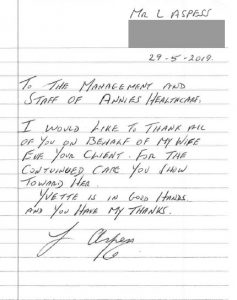 MR L ASPESS
29-5-2019.
TO THE MANAGEMENT AND
STAFF OF ANNIES HEALTHCARE,
I WOULD LIKE TO THANK ALL
OF YOU ON BEHALF OF MY WIFE
EVE YOUR CLIENT. FOR THE
CONTUNUED CARE YOU SHOW
TOWARD HER.
YVETTE IS IN GOOD HANDS.
AND YOU HAVE MY THANKS.
L Aspess